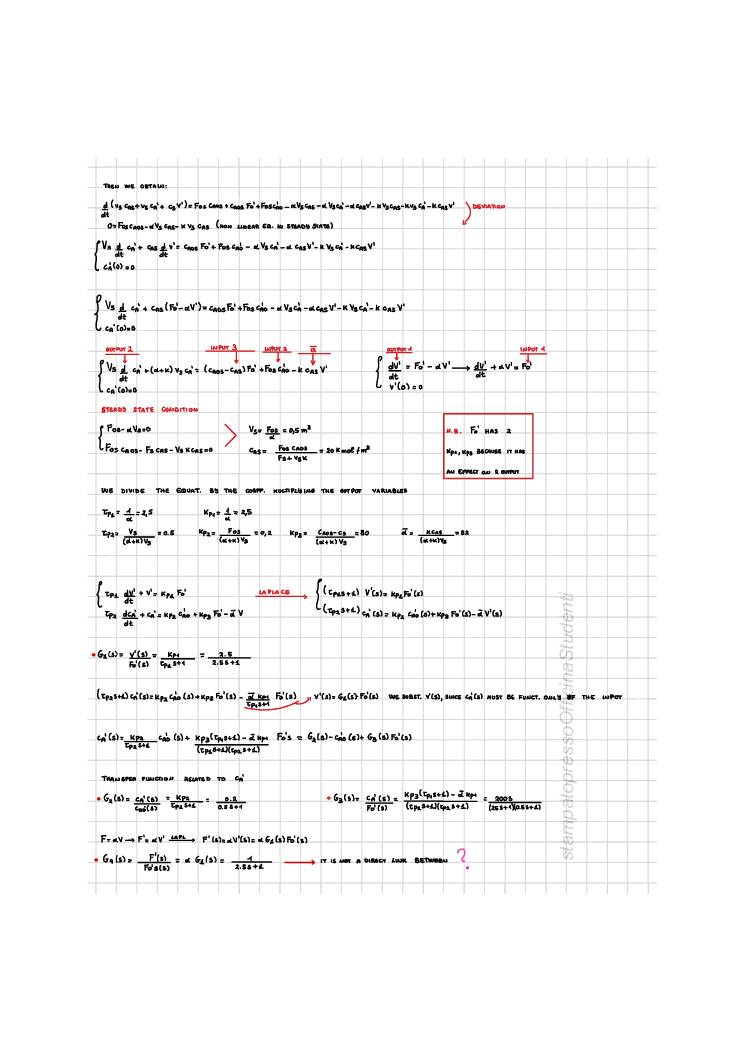 THEN WE OBTAIN:
d/dt (Vs CAS + Vs CA' + CS V') = FOS CAOS + CAOS FO' + FOS CAO' - αVS CAS - αVS CA' - αCAS V' - KVS CAS - KVS CA' - KCAS V' DEVIATION
0 = FOS CAOS - αVS CAS - K VS CAS (NON LINEAR EQ. IN STEADY STATE)
{ VS d/dt CA' + CAS d/dt V' = CAOS FO' + FOS CAO' - αVS CA' - αCAS V' - K VS CA' - KCAS V'
CA'(0) = 0
{ VS d/dt CA' + CAS (FO' - αV') = CAOS FO' + FOS CAO' - αVS CA' - αCAS V' - K VS CA' - K CAS V'
CA'(0)=0
OUTPUT 2 INPUT 3 INPUT 2 α̅ OUTPUT 1 INPUT 1
{ VS d/dt CA' + (α+K) VS CA' = (CAOS - CAS) FO' + FOS CAO' - K CAS V' { dV'/dt = FO' - αV' → dV'/dt + αV' = FO'
CA'(0)=0 V'(0) = 0
STEADY STATE CONDITION
{ FOS - αVS = 0 VS = FOS/α = 0,5 m³ N.B. FO' HAS 2
FOS CAOS - FS CAS - VS KCAS = 0 CAS = FOS CAOS/(FS + VSK) = 20 Kmol/m³ KP1, KP3 BECAUSE IT HAS
AN EFFECT ON 2 OUTPUT
WE DIVIDE THE EQUAT. BY THE COEFF. MULTIPLYING THE OUTPUT VARIABLES
τP1 = 1/α = 2,5 KP1 = 1/α = 2,5
τP2 = VS/((α+K)VS) = 0.5 KP2 = FOS/((α+K)VS) = 0,2 KP3 = (CAOS - CS)/((α+K)VS) = 80 α̅ = KCAS/((α+K)VS) = 32
{ τP1 dV'/dt + V' = KP1 FO' LAPLACE → { (τP1S+1) V'(S) = KP1 FO'(S)
τP2 dCA'/dt + CA' = KP2 CAO' + KP3 FO' - α̅ V (τP2S+1) CA'(S) = KP2 CAO'(S) + KP3 FO'(S) - α̅ V'(S)
• G1(S) = V'(S)/FO'(S) = KP1/(τP1S+1) = 2.5/(2.5S+1)
(τP2S+1) CA'(S) = KP2 CAO'(S) + KP3 FO'(S) - α̅ KP1/(τP1S+1) FO'(S) V'(S) = G1(S) FO'(S) WE SUBST. V'(S), SINCE CA'(S) MUST BE FUNCT. ONLY OF THE INPUT
CA'(S) = KP2/(τP2S+1) CAO'(S) + (KP3(τP1S+1) - α̅ KP1)/((τP1S+1)(τP2S+1)) FO'S = G2(S) - CAO'(S) + G3(S) FO'(S)
TRANSFER FUNCTION RELATED TO CA'
• G2(S) = CA'(S)/CAO'(S) = KP2/(τP2S+1) = 0.2/(0.5S+1) • G3(S) = CA'(S)/FO'(S) = (KP3(τP1S+1) - α̅ KP1)/((τP1S+1)(τP2S+1)) = 200S/((25S+1)(0.5S+1))
F = αV → F' = αV' LAPL → F'(S) = αV'(S) = αG1(S) FO'(S)
• G4(S) = F'(S)/FO'S(S) = α G1(S) = 1/(2.5S+1) → IT IS NOT A DIRECT LINK BETWEEN ?
stampatopressoOfficinaStudenti